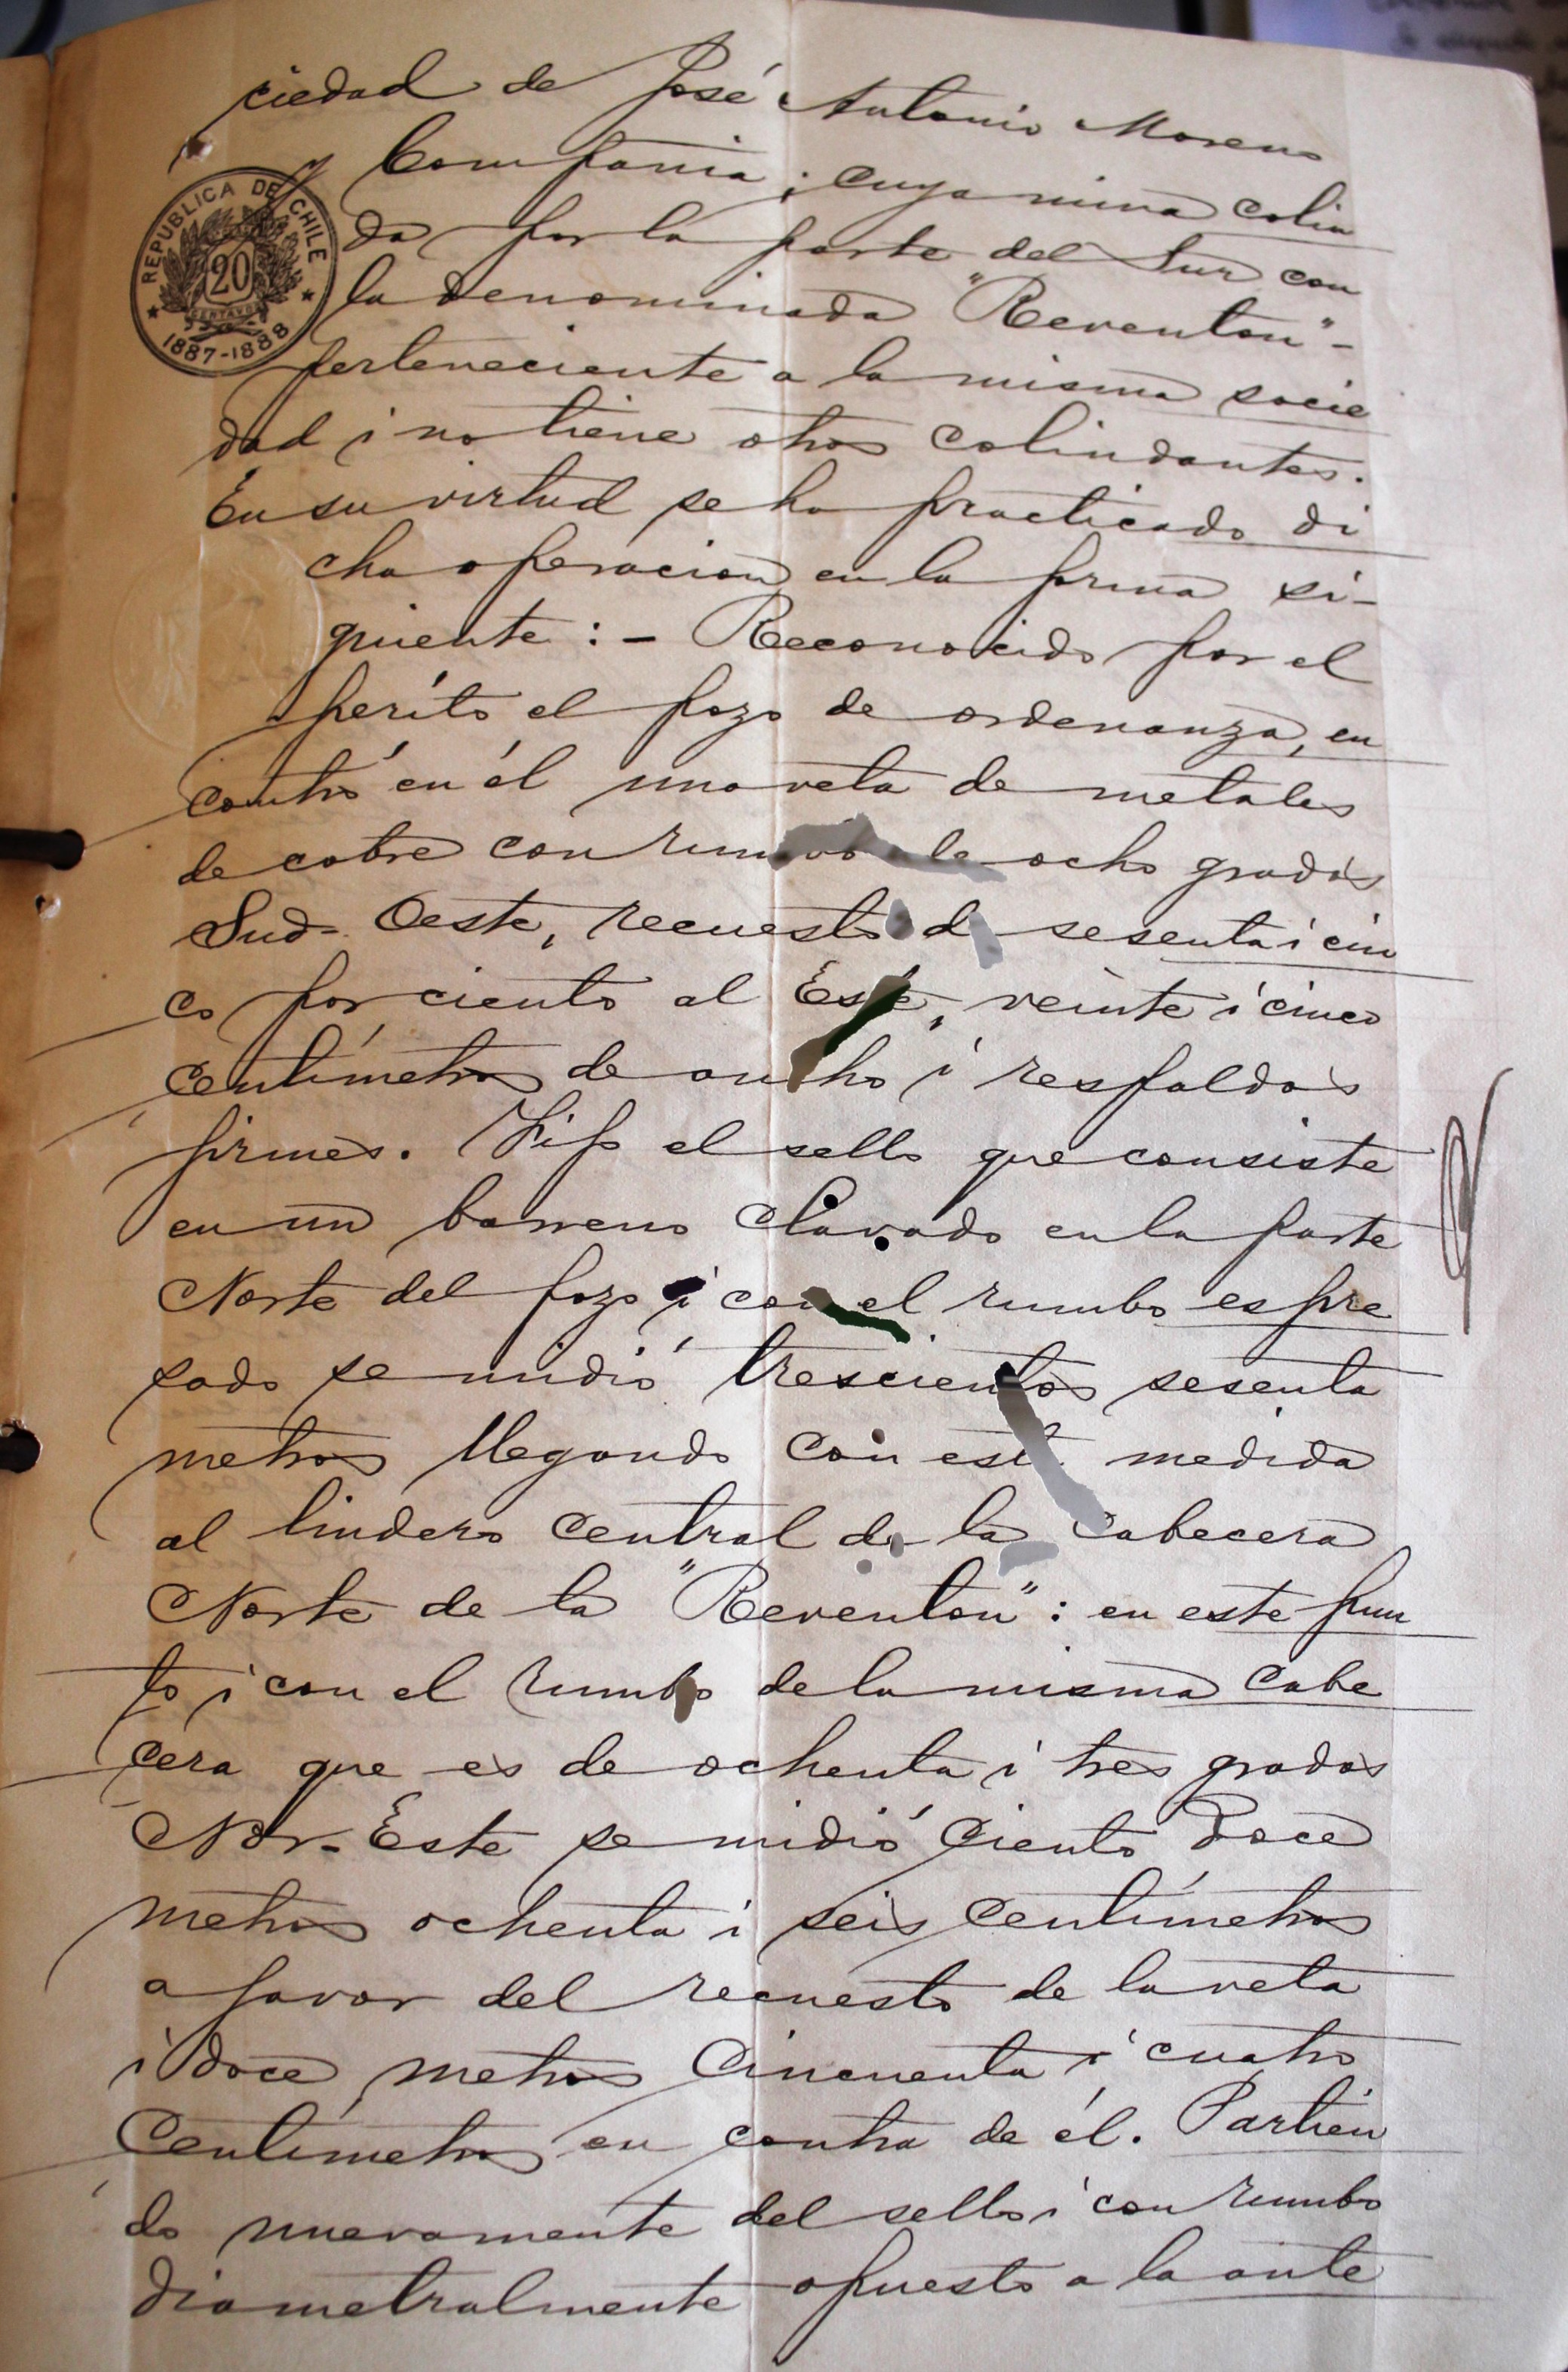 ciedad de José Antonio Moreno
y Compañia; cuya mina colin
da por la parte del Sur con
la denominada "Reventon"-
perteneciente a la misma socie
dad i no tiene otros colindantes.
En su virtud se ha practicado di
cha operacion en la forma si-
guiente: - Reconocido por el
perito el pozo de ordenanza, en
contró en él una veta de metales
de cobre con rumbo de ocho grados
Sud-Oeste, recuesto de sesenta i cin
co por ciento al Este, veinte i cinco
centímetros de ancho i respaldos
firmes. Fijo el sello que consiste
en un barreno clavado en la parte
Norte del pozo i con el rumbo espre
sado se midió trescientos sesenta
metros llegando con esta medida
al lindero central de la cabecera
Norte de la "Reventon": en este pun
to i con el rumbo de la misma cabe
cera que es de ochenta i tres grados
Nor-Este se midió ciento doce
metros ochenta i seis centímetros
a favor del recuesto de la veta
i doce metros cincuenta i cuatro
centímetros en contra de él. Partien
do nuevamente del sello i con rumbo
diametralmente opuesto a la ante
REPUBLICA DE CHILE
20
CENTAVOS
1887-1888